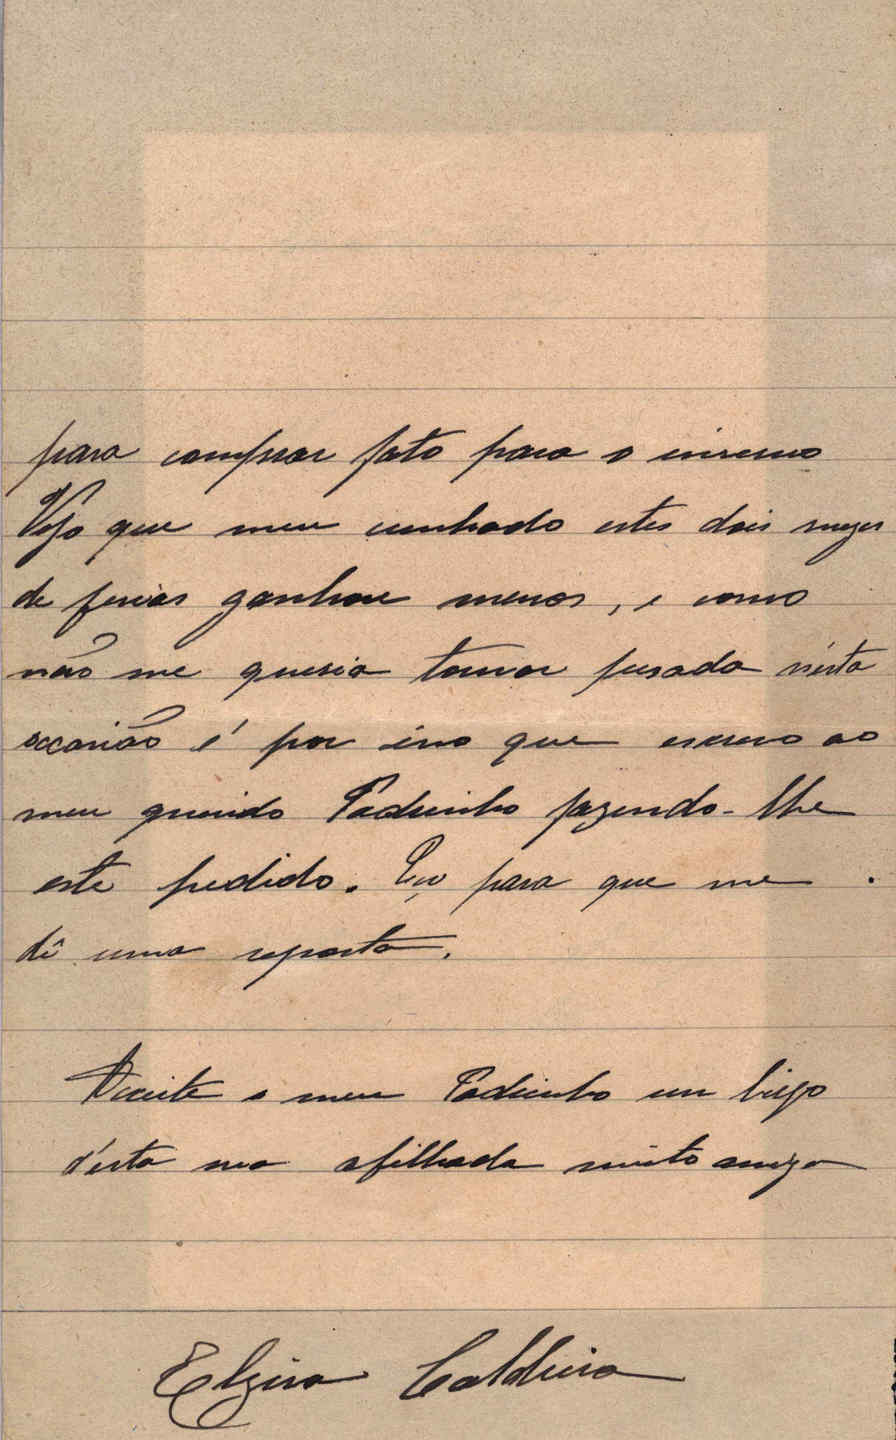 para comprar fato para o inverno
Vejo que meu cunhado estes dois mezes
de ferias ganhou menos, e como
não me queria tornar pesada n'esta
occasião é por isso que escrevo ao
meu querido Padrinho fazendo-lhe
este pedido. para que me
dê uma reposta.
Acceite o meu Padrinho um beijo
d'esta sua afilhada muito amiga
Elzira Caldeira